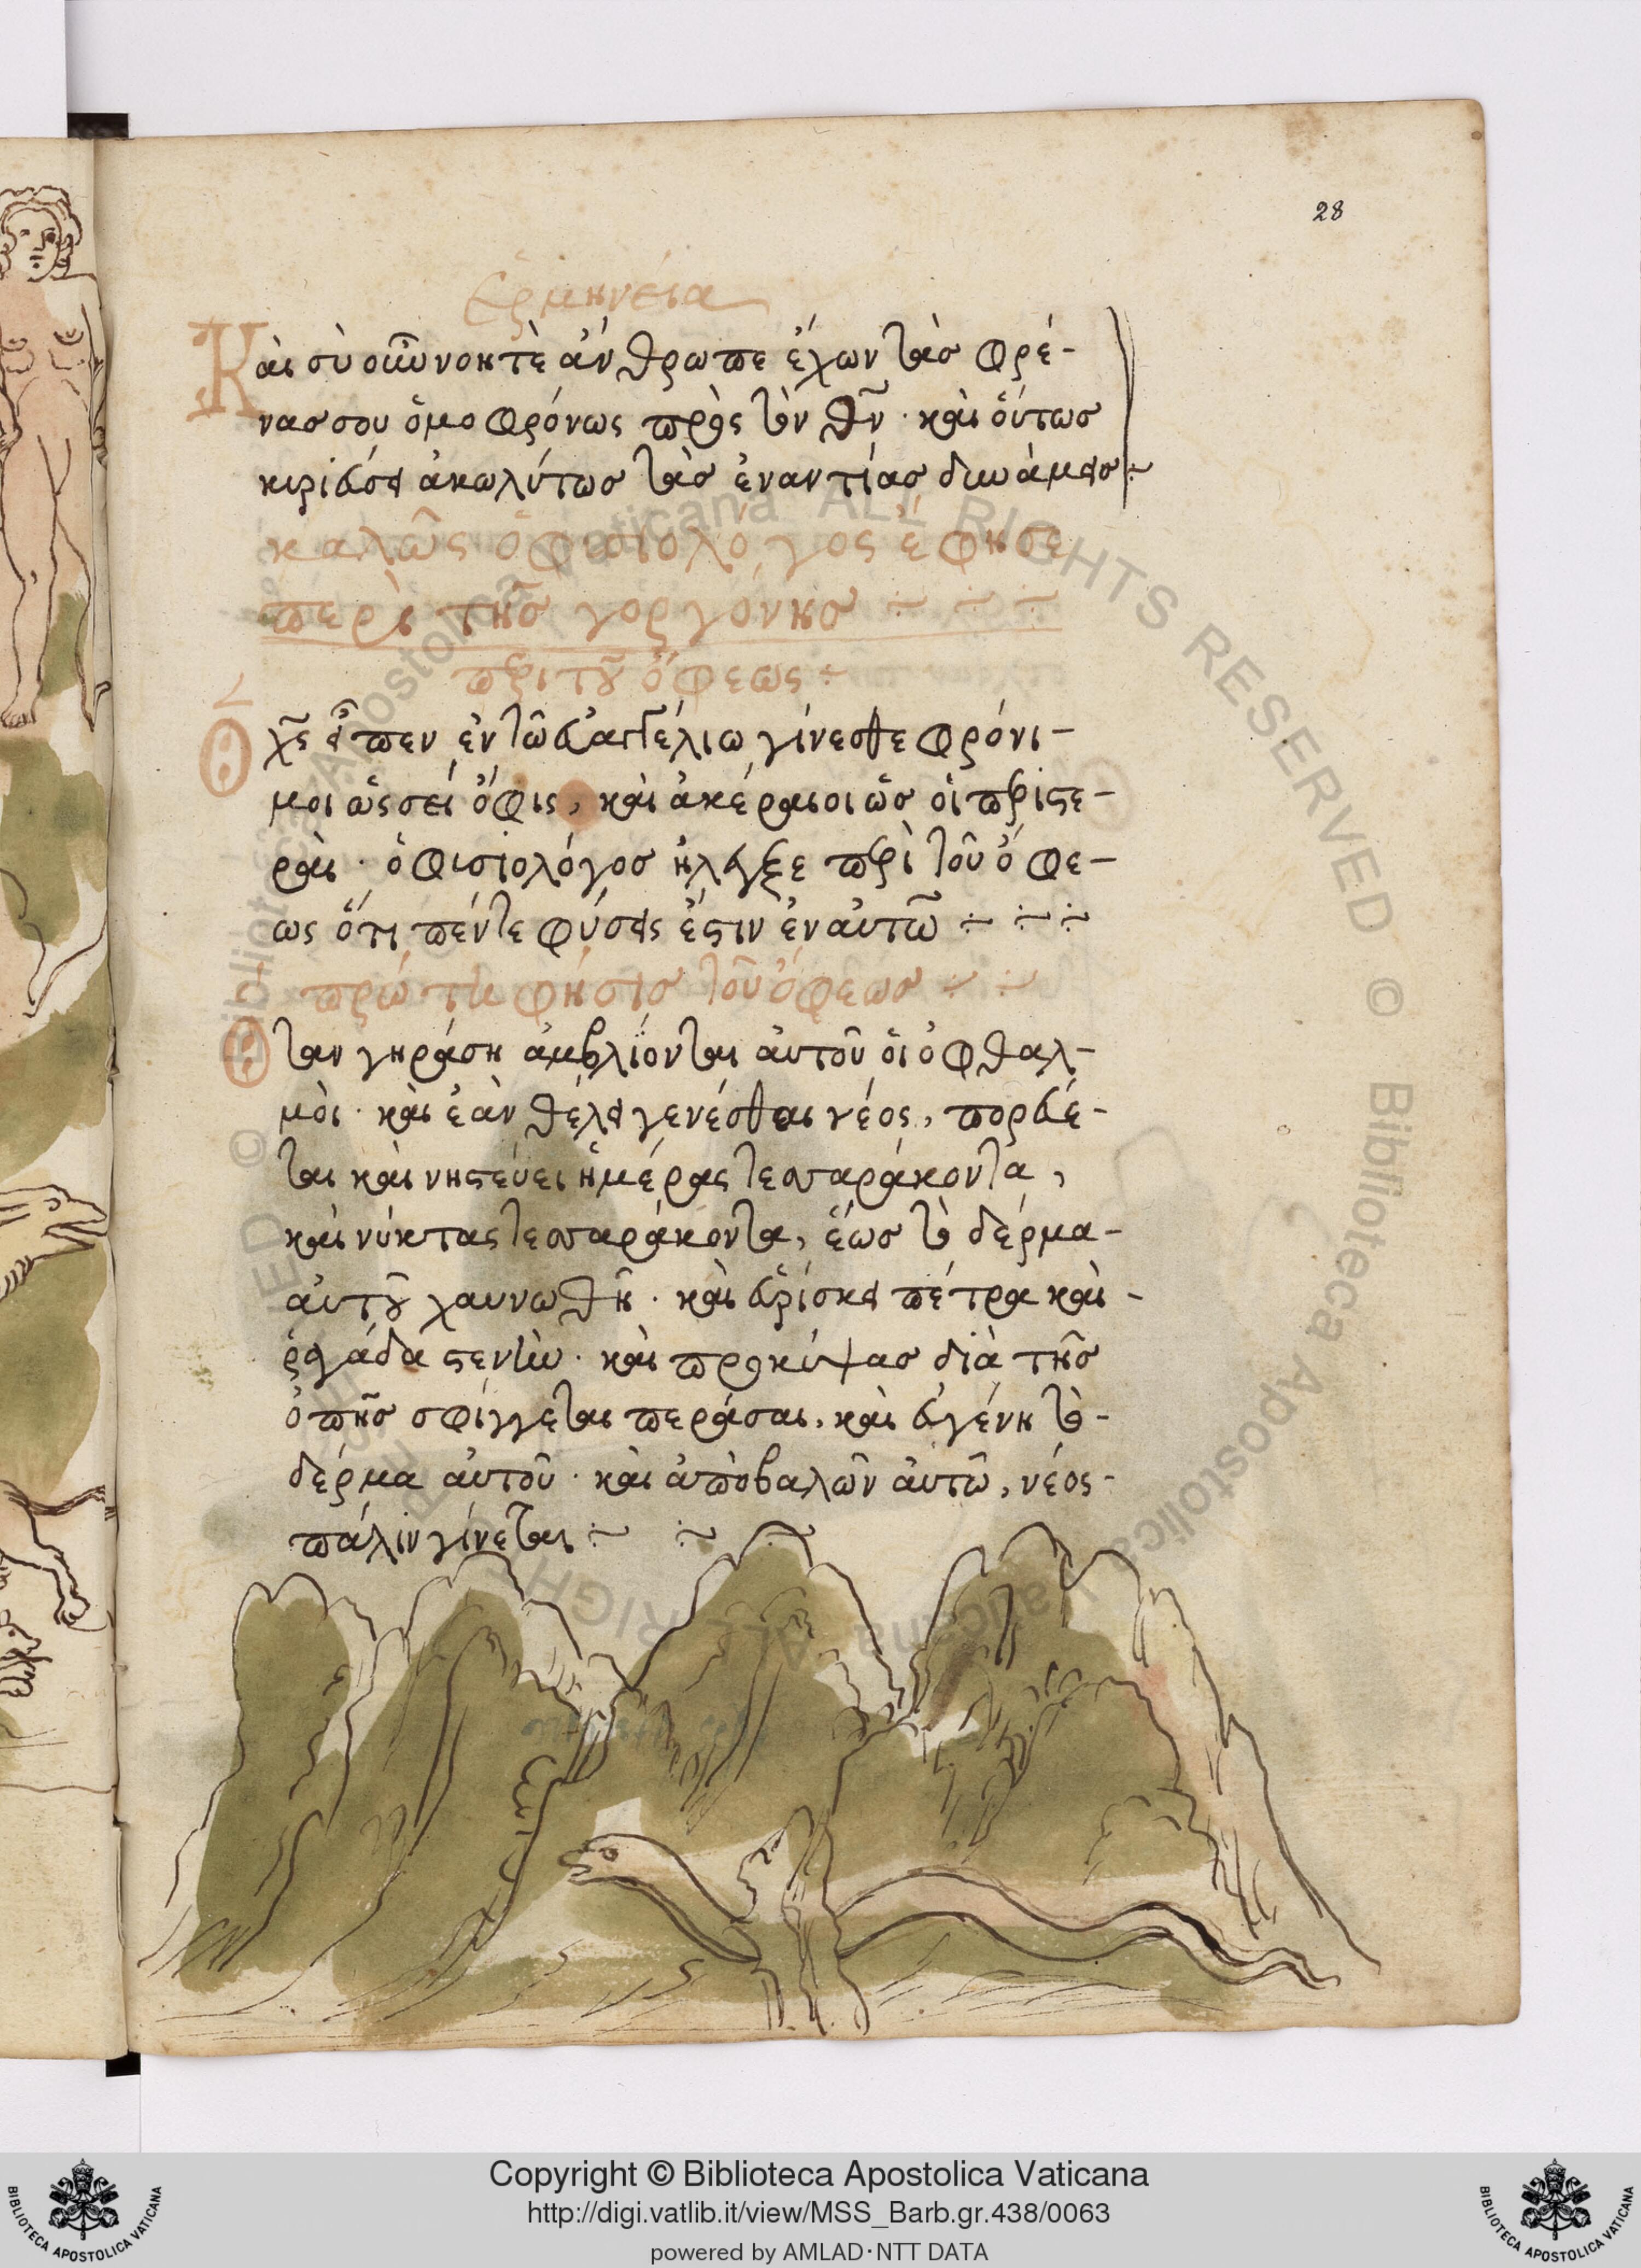 28
Ἑρμηνεία
Καὶ σὺ οὖν νοητὲ ἄνθρωπε ἔχων τὰσ φρέ-
νασ σου ὁμοφρόνως πρὸς τὸν θν̃ · καὶ οὕτωσ
κυριεύσει ἀκωλύτωσ τὰσ ἐναντίασ δυνάμεισ
καλῶς ὁ φισιολόγος ἔφησε
περὶ τῆσ γοργόνησ
περι τοῦ ὄφεως
Ὁ χς̃ εἶπεν ἐν τῶ εὐαγγελίω γίνεσθε φρόνι-
μοι ὡς σεί ὄφις, καὶ ἀκέραιοι ὡσ οἱ περιστε-
ραὶ · ὁ φισιολόγοσ ἤλεγξε περὶ τοῦ ὄφε-
ως ὅτι πέντε φύσεις ἔστιν ἐν αὐτῶ
πρώτη φήσισ τοῦ ὄφεωσ
Ὅταν γηράση ἀμβλίονται αὐτοῦ οἱ ὀφθαλ-
μὸι · καὶ ἐὰν θέλει γενέσθαι νέος, πορεύε-
ται καὶ νηστεύει ἡμέρας τεσσαράκοντα,
καὶ νύκτας τεσσαράκοντα, ἕωσ τὸ δέρμα-
αὐτοῦ χαυνωθῆ · καὶ εὑρίσκει πέτρα καὶ-
ῥαγάδα στενὴν · καὶ προκύψασ διὰ τῆσ
ὀπῆσ σφίγγεται περάσαι, καὶ εὐγένη τὸ-
δέρμα αὐτοῦ · καὶ ἀπὸβαλῶν αὐτῶ, νέος-
πάλιν γίνεται
Copyright © Biblioteca Apostolica Vaticana
http://digi.vatlib.it/view/MSS_Barb.gr.438/0063
powered by AMLAD·NTT DATA
BIBLIOTECA APOSTOLICA VATICANA
BIBLIOTECA APOSTOLICA VATICANA